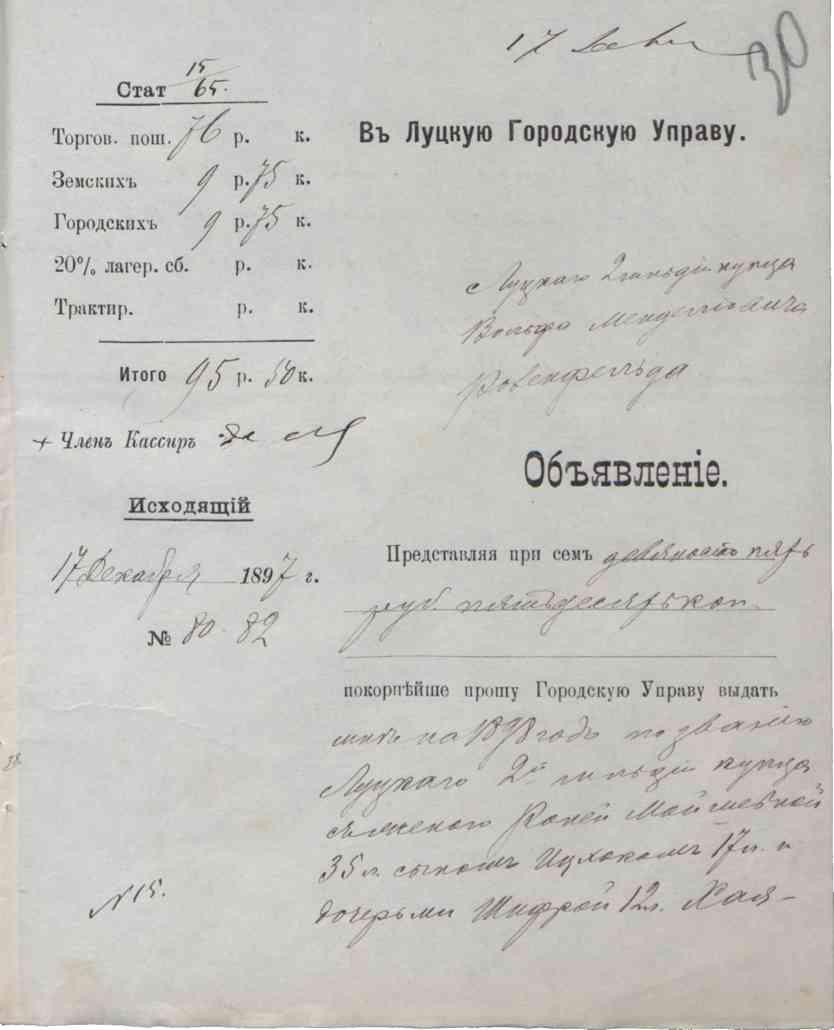 17 Дек
30
Стат 15/65.
Торгов. пош. 76 р. к.
Земскихъ 9 р. 75 к.
Городскихъ 9 р. 75 к.
20% лагер. сб. р. к.
Трактир. р. к.
Итого 95 р. 50 к.
+ Членъ Кассиръ
Исходящій
17 Декабря 1897 г.
№ 80-82
N 15.
Въ Луцкую Городскую Управу.
Луцкаго 2 гильдіи купца
Вольфа Менделевича
Розенфельда
Объявленіе.
Представляя при семъ девяносто пять
руб. пятьдесятъ коп.
покорнѣйше прошу Городскую Управу выдать
мнѣ на 1898 годъ по званію
Луцкаго 2й гильдіи купца
съ женою Мошковной
35 л. сыномъ Ицхокомъ 17 л. и
дочерьми Шифрой 12 л. Хая-